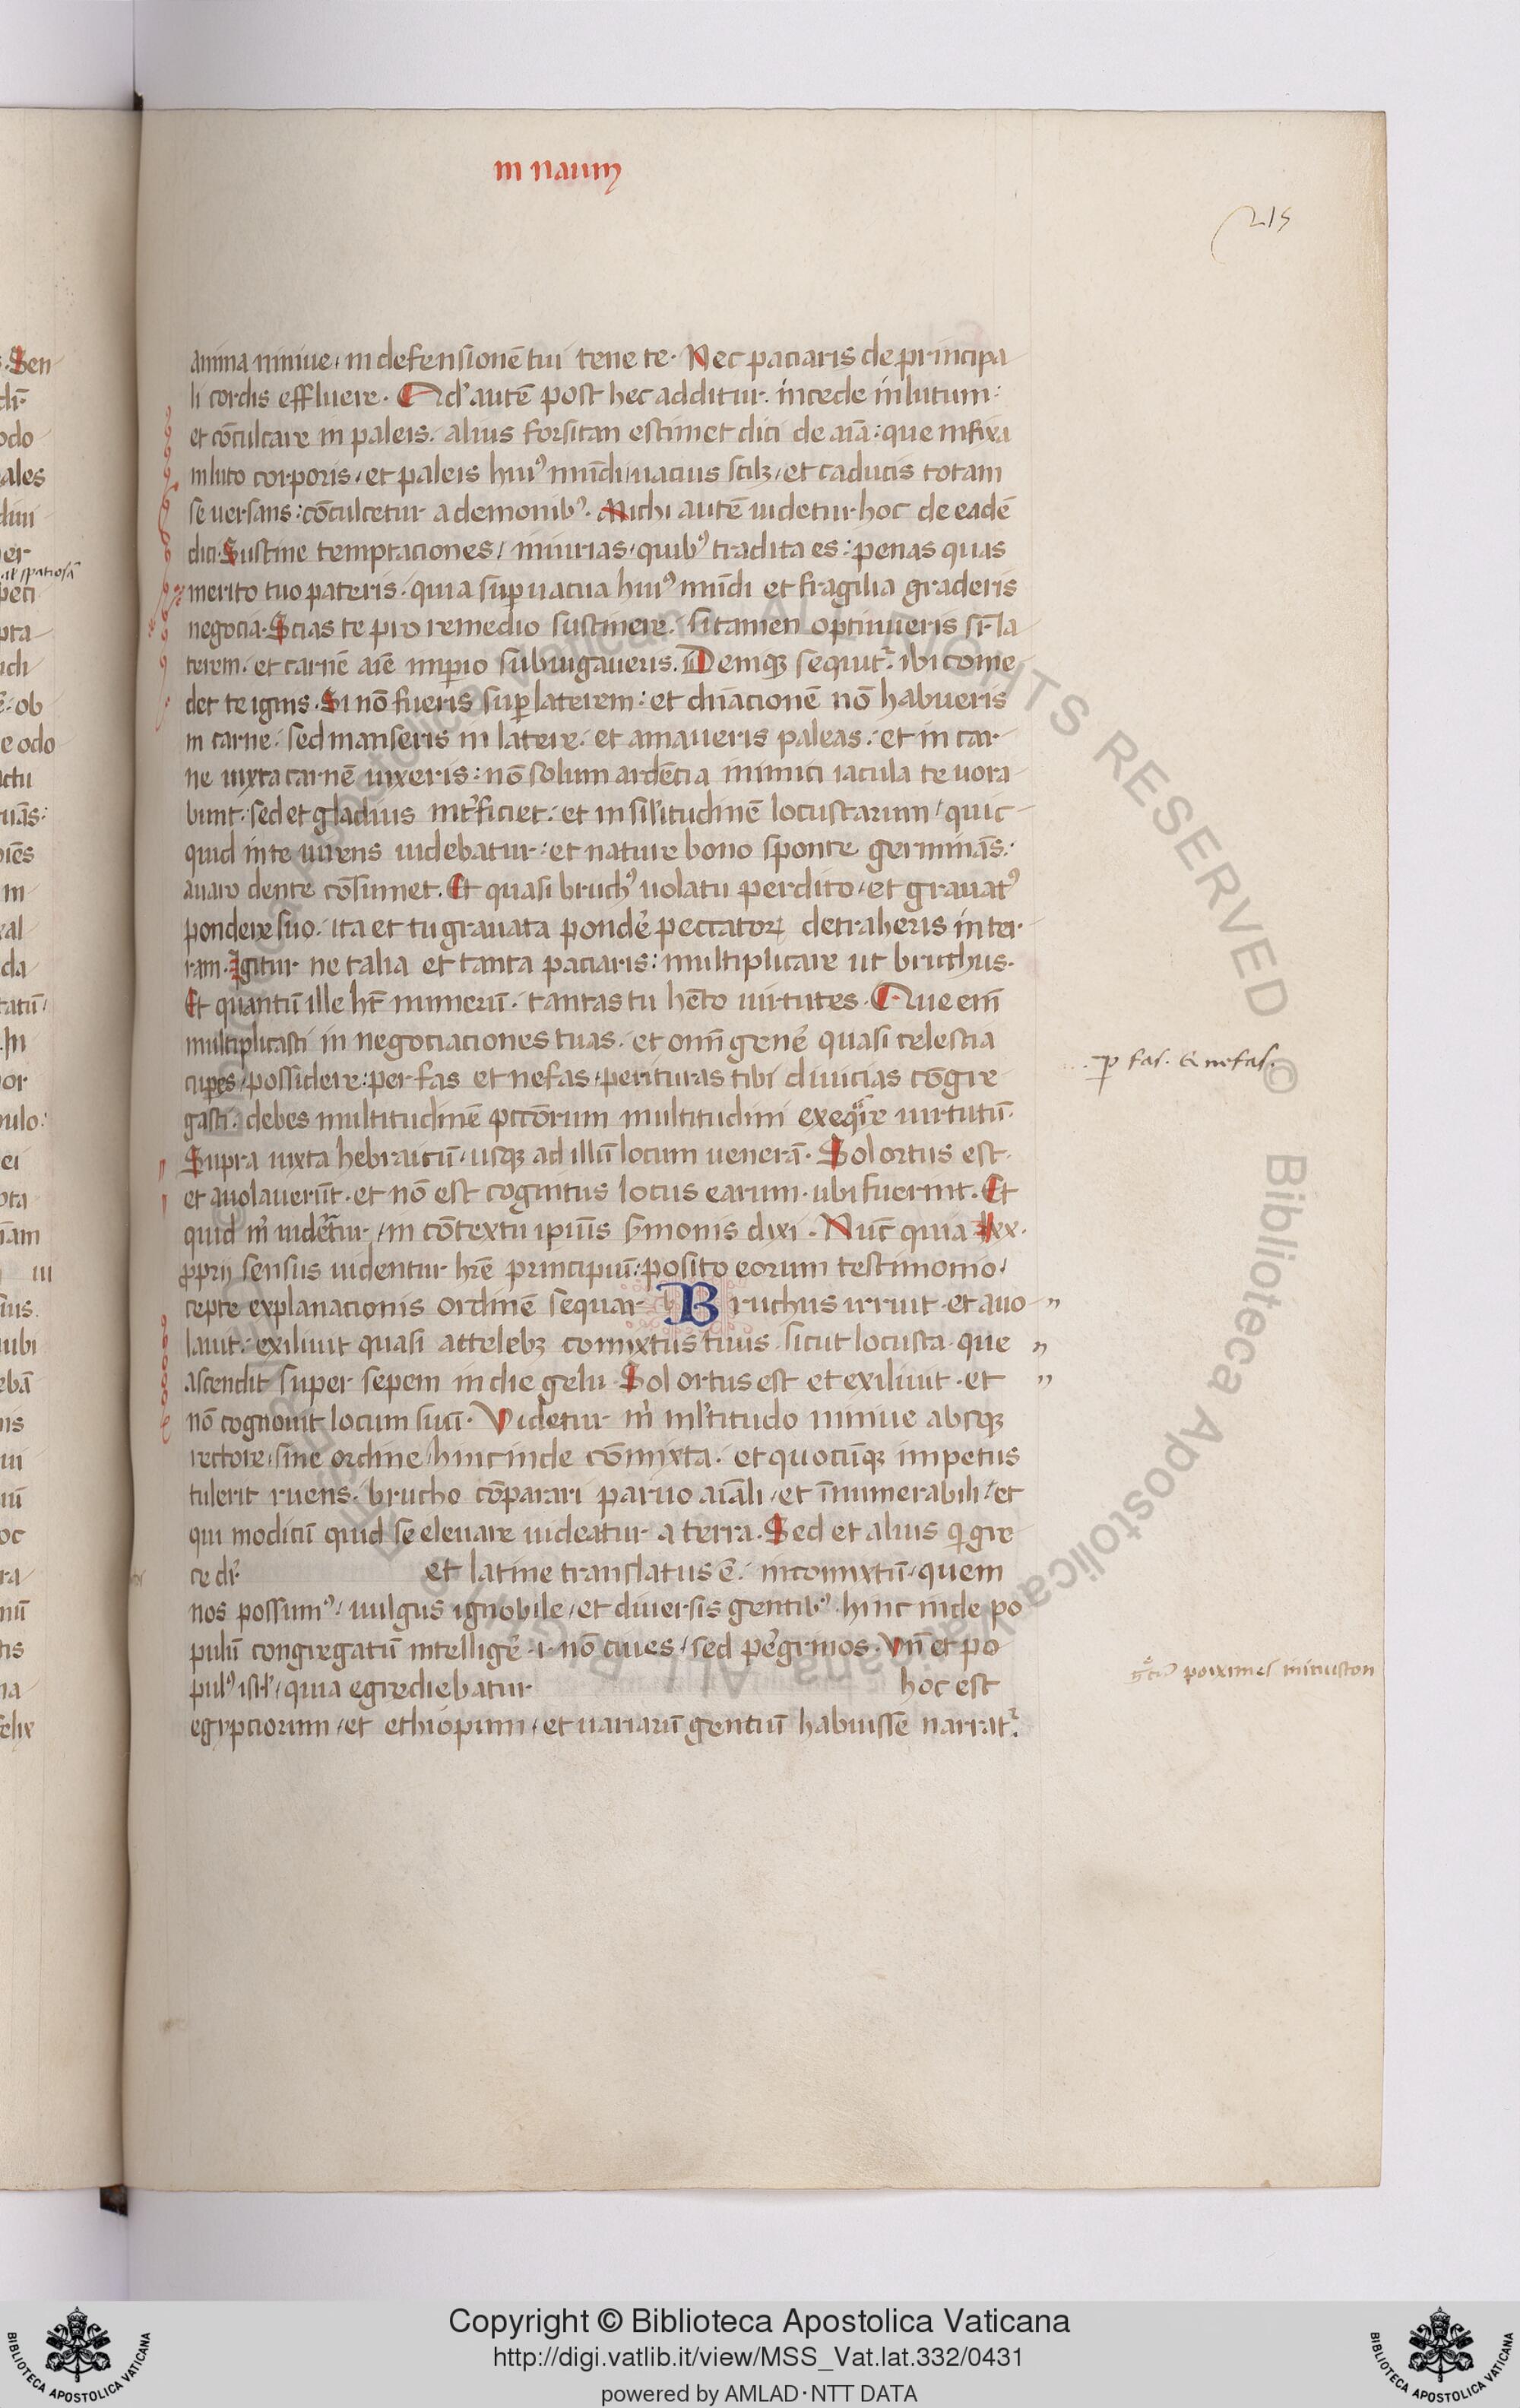 in naum
215
anima niniue, in defensionē tui tene te. Nec paciaris de principa
li cordis effluere. Qd' autē post hec additur. incede in lutum:
et cōculcare in paleis. alius forsitan estimet dici de aīa: que infixa
in luto corporis, et paleis hui' mūdi, uacuis scilꝫ, et caducis totam
se uersans: cōculcetur a demonib'. Michi autē uidetur hoc de eadē
dici. Sustine temptaciones, iniurias, quib' tradita es: penas quas
merito tuo pateris. quia suꝑuacua hui' mūdi et fragilia graderis
negocia. Scias te pro remedio sustinere. si tamen optinueris sr̄ la
terem. et carnē aīe imꝑio subiugaueris. Demqꝫ sequit᷑. ibi come
det te ignis. Si nō fueris suꝑ laterem: et dn̄acionē nō habueris
in carne. sed manseris in latere. et amaueris paleas. et in car
ne iuxta carnē uixeris: nō solum ardētia inimici iacula te uora
bunt: sed et gladius int'ficiet. et in sil'itudinē locustarum, quic
quid in te uirens uidebatur. et nature bono sponte germinās.
auaro dente cōsumet. Et quasi bruch' uolatu perdito, et grauat'
pondere suo. ita et tu grauata pond'e peccatoꝝ detraheris in ter
ram. Igitur ne talia et tanta paciaris: multiplicare ut bruchus.
Et quantū ille ht̄ numerū. tantas tu hēto uirtutes. Que em̄
multiplicasti in negociaciones tuas. et om̄i gen'e quasi celestia
cupes, possidere: per fas et nefas, perituras tibi diuicias cōgre
gasti. debes multitudinē pccōrum multitudini exeq̈re uirtutū.
Supra iuxta hebraicū, usqꝫ ad illū locum ueneram. Sol ortus est.
et auolauerūt. et nō est cognitus locus earum. ubi fuerint. Et
quid m' uideretur, in cōtextu ipiūs s'monis dixi. Nūc quia lxx.
ꝓprij sensus uidentur hr̄e principiū: posito eorum testimonio,
cepte explanacionis ordinē sequar. Bruchus irruit. et auo "
lauit. exiliuit quasi attelebꝫ comixtus tuus. sicut locusta. que "
ascendit super sepem in die gelu. Sol ortus est et exiliuit. et "
nō cognouit locum suū. Videtur m' ml'titudo niniue absqꝫ
rectore, sine ordine, hinc inde cōmixta. et quocūqꝫ impetus
tulerit ruens. brucho cōparari paruo aīali, et īnumerabili, et
qui modicū quid se eleuare uideatur a terra. Sed et alius q̄ gre
ce dr̄ et latine translatus ē. incomixtū, quem
nos possum'. uulgus ignobile, et diuersis gentib' hinc inde po
pulū congregatū intellig'e .i. nō ciues, sed pe'grinos. Vn̄ et po
pul' isrl', quia egrediebatur hoc est
egypciorum, et ethiopum, et uariarū gentiū habuisse narrat᷑.
ꝑ fas. & nefas.
poiximes inicuston
Copyright © Biblioteca Apostolica Vaticana
http://digi.vatlib.it/view/MSS_Vat.lat.332/0431
powered by AMLAD·NTT DATA
BIBLIOTECA APOSTOLICA VATICANA
BIBLIOTECA APOSTOLICA VATICANA